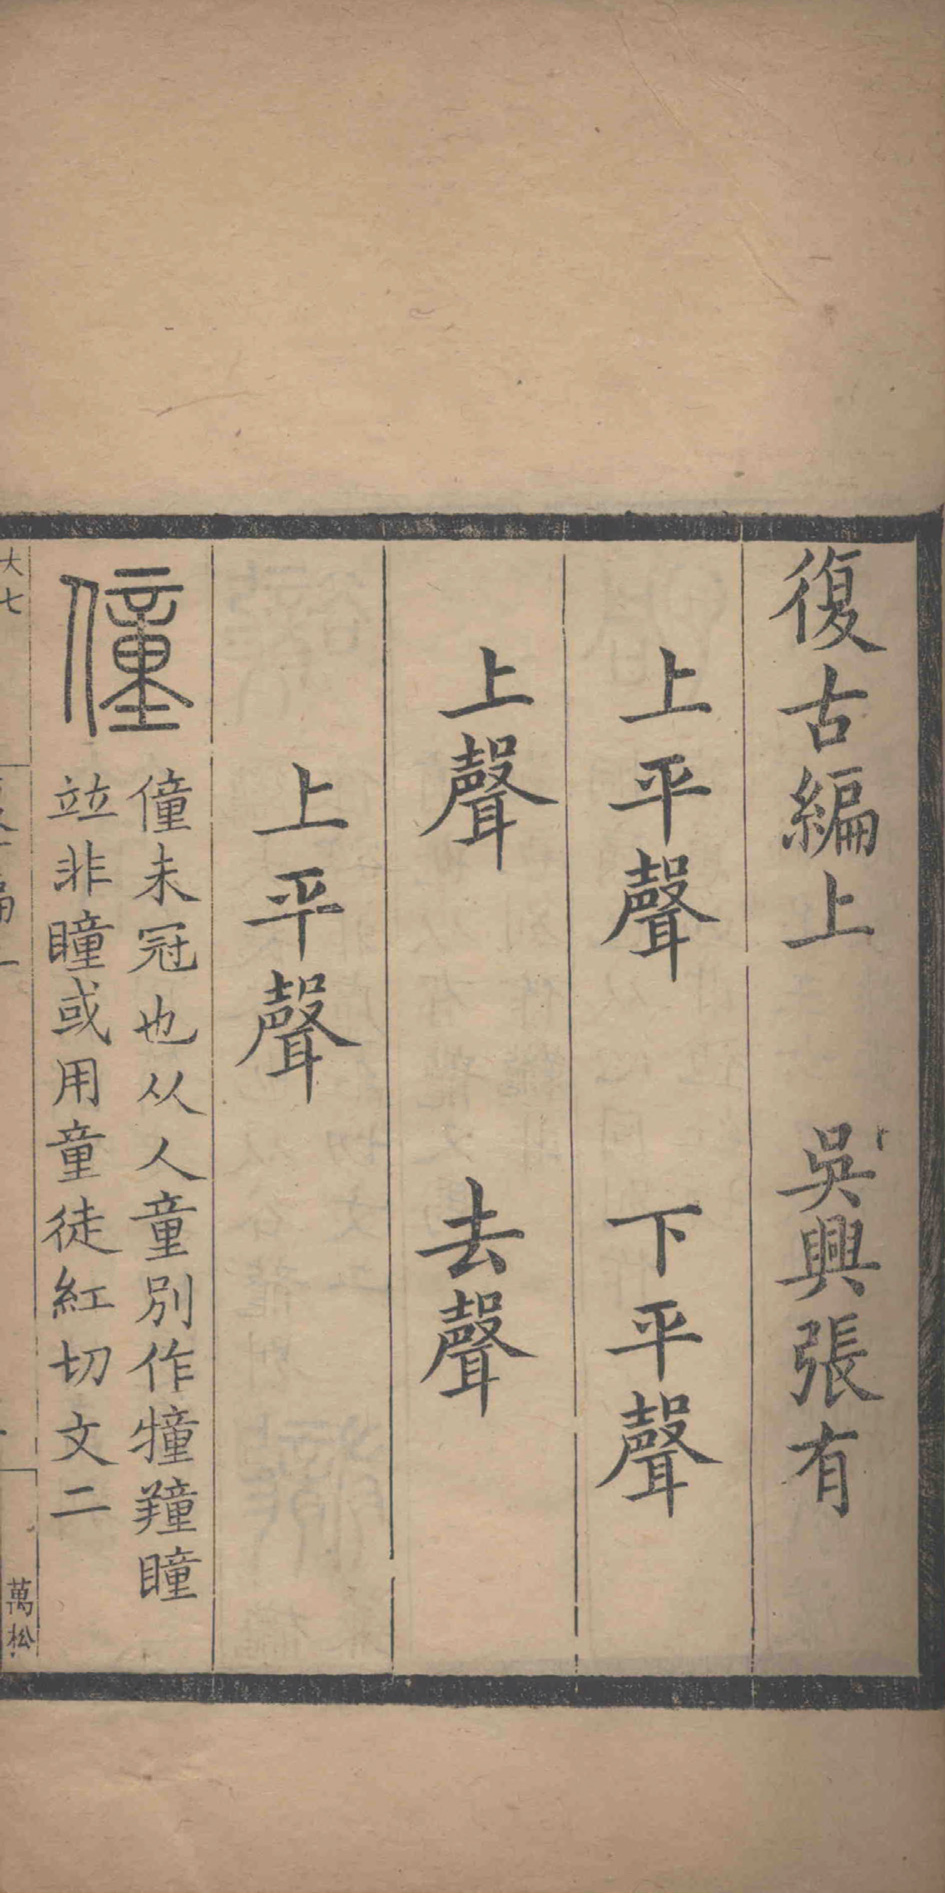 復古編上 吳興張有
上平聲 下平聲
上聲 去聲
上平聲
僮
僮未冠也从人童別作犝羵瞳
竝非瞳或用童徒紅切文二
大七
萬松